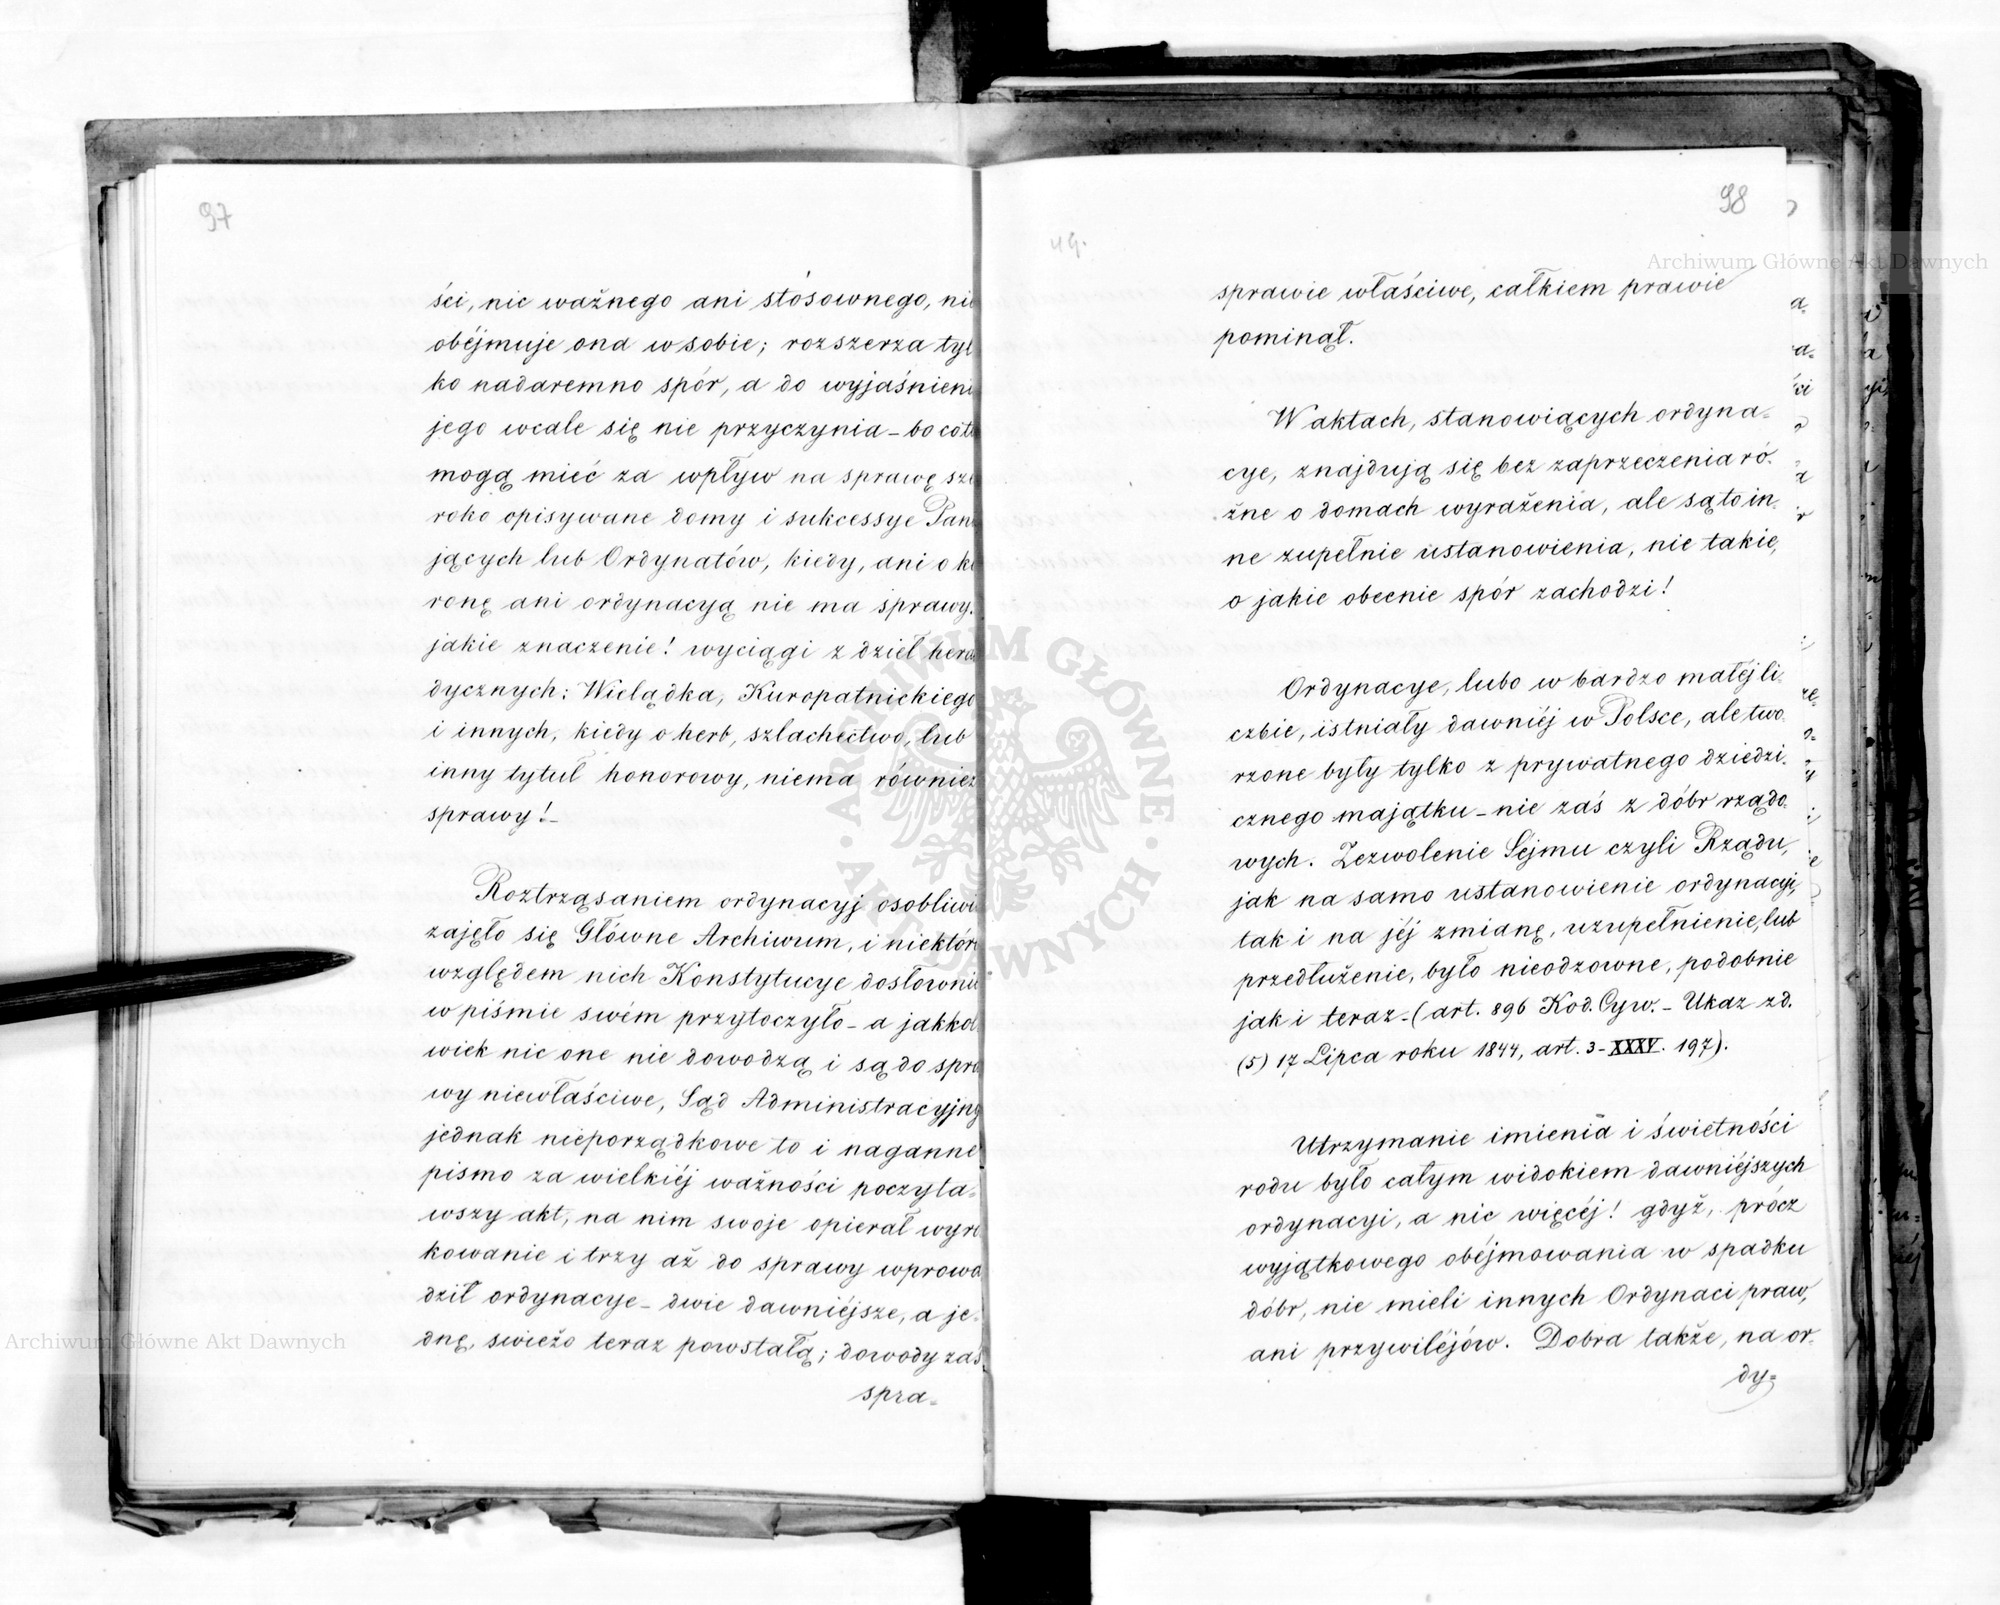 97
ści, nic ważnego ani stósownego, nie
obéjmuje ona w sobie; rozszerza tyl
ko nadaremno spór, a do wyjaśnieni
jego wcale się nie przyczynia – bo cóż
mogą mieć za wpływ na sprawę sze
roko opisywane domy i sukcessye Panu
jących lub Ordynatów, kiedy, ani o ko
ronę ani ordynacyą nie ma sprawy.
jakie znaczenie! wyciągi z dzieł heral
dycznych: Wielądka, Kuropatnickiego
i innych, kiedy o herb, szlachectwo, lub
inny tytuł honorowy, niema również
sprawy! –
Roztrząsaniem ordynacyj osobliwi
zajęło się Główne Archiwum, i niektóre
względem nich Konstytucye dosłownie
w piśmie swém przytoczyło – a jakkol
wiek nic one nie dowodzą i są do spra
wy niewłaściwe, Sąd Administracyjny
jednak nieporządkowe to i naganne
pismo za wielkiéj ważności poczyta=
wszy akt, na nim swoje opierał wyro
kowanie i trzy aż do sprawy wprowa
dził ordynacye – dwie dawniéjsze, a je=
dnę, świeżo teraz powstałą; dowody zaś
spra=
98
49.
sprawie właściwe, całkiem prawie
pominął.
W aktach, stanowiących ordyna=
cye, znajdują się bez zaprzeczenia ró=
żne o domach wyrażenia, ale są to in=
ne zupełnie ustanowienia, nie takie,
o jakie obecnie spór zachodzi!
Ordynacye, lubo w bardzo małéj li=
czbie, istniały dawniéj w Polsce, ale two=
rzone były tylko z prywatnego dziedzi=
cznego majątku – nie zaś z dóbr rządo=
wych. Zezwolenie Sejmu czyli Rządu,
jak na samo ustanowienie ordynacyi,
tak i na jéj zmianę, uzupełnienie, lub
przedłużenie, było nieodzowne, podobnie
jak i teraz – (art. 896 Kod. Cyw. – Ukaz z d.
(5) 17 Lipca roku 1844, art. 3 – XXXV. 197).
Utrzymanie imienia i świetności
rodu było całym widokiem dawniéjszych
ordynacyi, a nic więcéj! gdyż, prócz
wyjątkowego obéjmowania w spadku
dóbr, nie mieli innych Ordynaci praw,
ani przywiléjów. Dobra także, na or=
dy=
Archiwum Główne Akt Dawnych
Archiwum Główne Akt Dawnych
ARCHIWUM GŁÓWNE AKT DAWNYCH